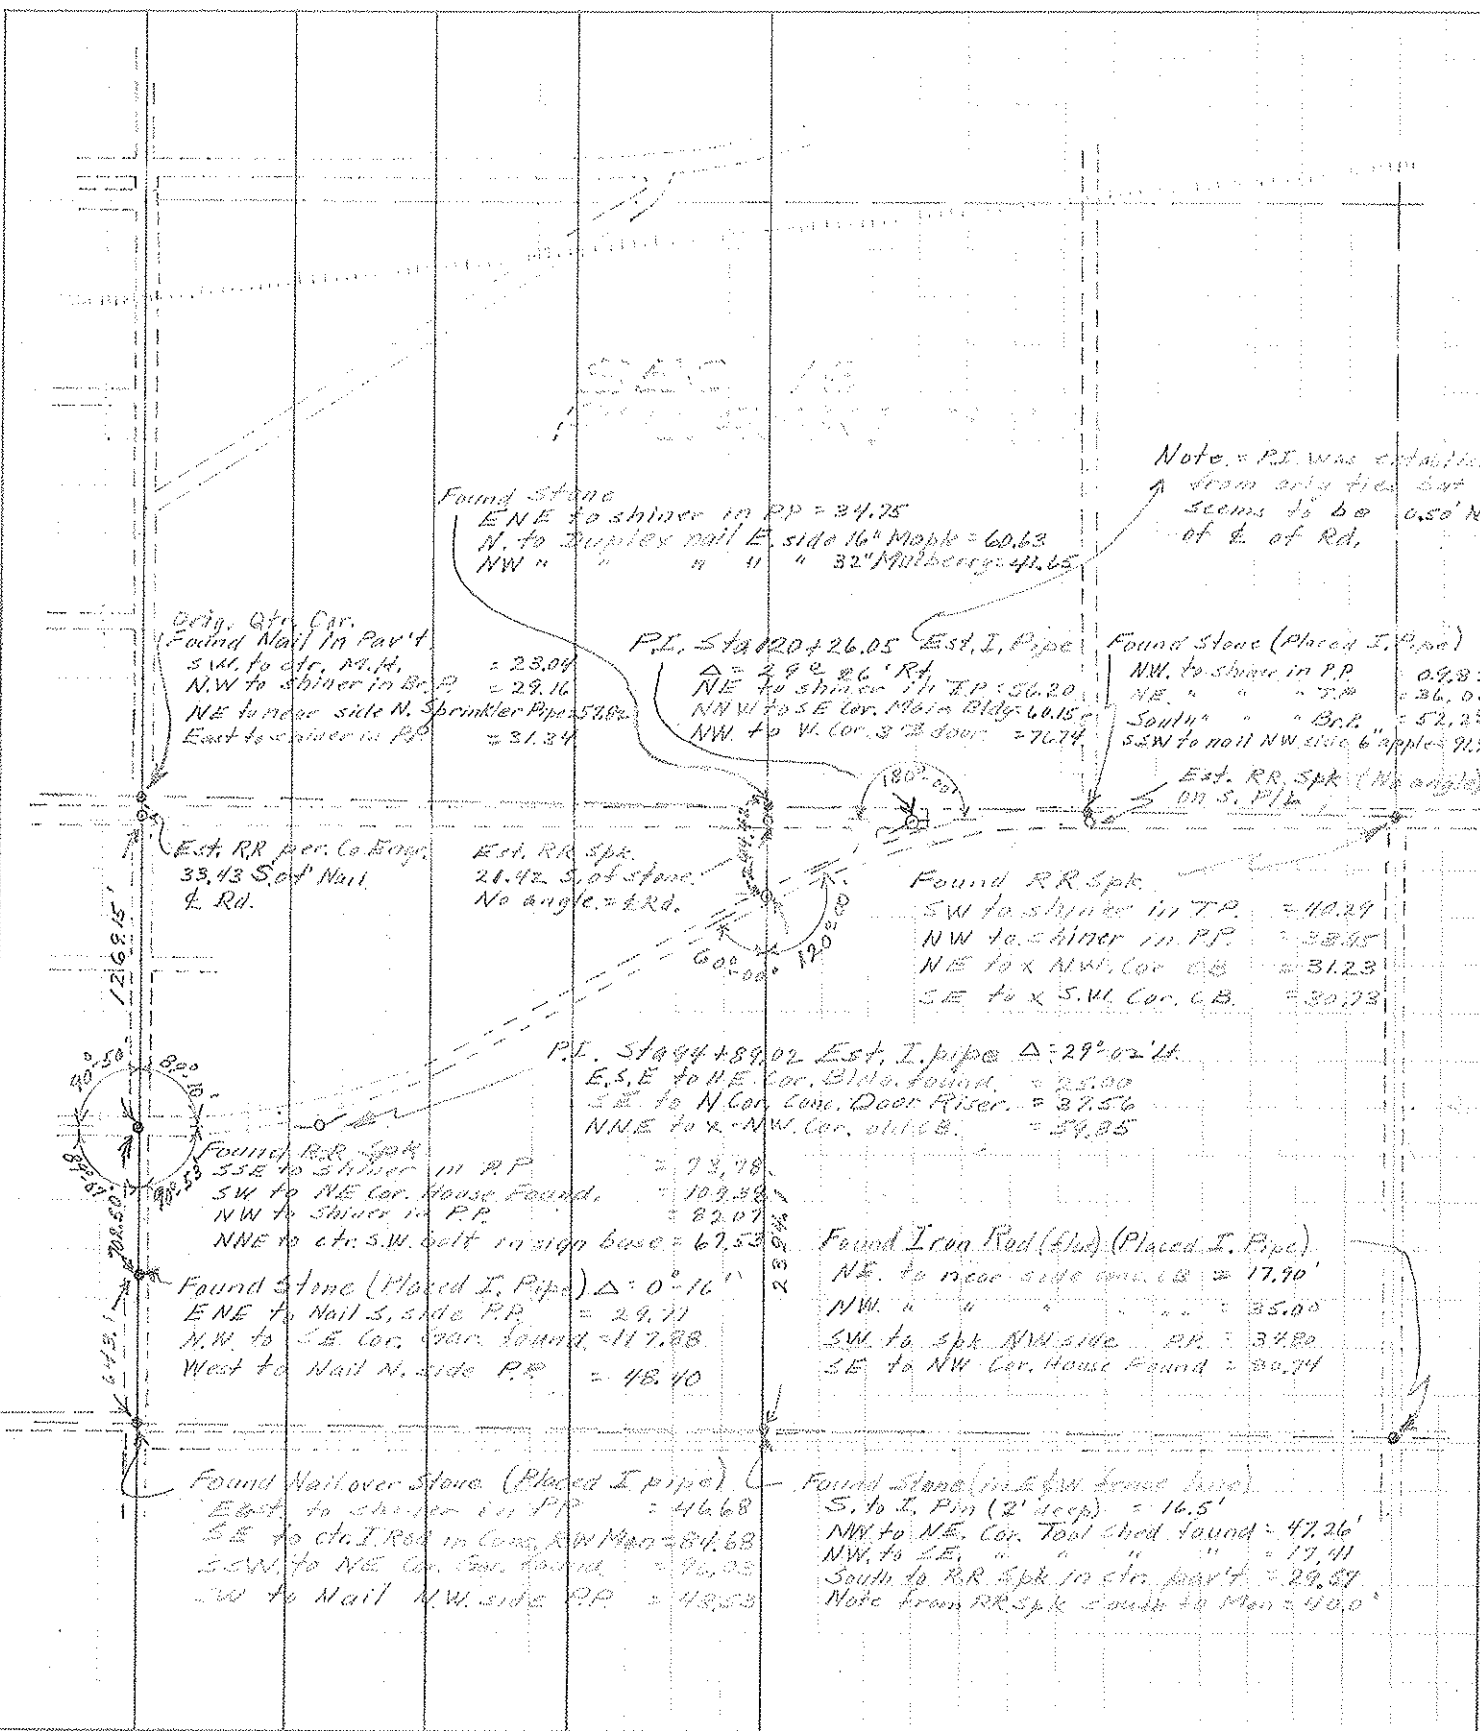 SEC. 16
Note = P.I. was
from orig ties but
seems to be 0.50' N
of ℄ of Rd.
Found Stone
ENE to shiner in PP = 34.75
N. to Duplex nail E. side 16" Maple = 60.63
NW " " " " " 32" Mulberry = 41.65
Orig. Qtr. Cor.
Found Nail in Pav't
S.W. to ctr. M.H. = 23.04
N.W to shiner in Br. P. = 29.16
NE to near side N. Sprinkler Pipe =
East to shiner in PP = 31.34
P.I. Sta 120+26.05 Est. I. Pipe
Δ = 29° 26' Rt.
NE to shiner in T.P. = 56.20
NNW to SE Cor. Main Bldg = 60.15
NW. to W. Cor. 3rd door = 76.74
Found Stone (Placed I. Pipe)
NW. to shiner in P.P.
NE. " " " T.P. = 36.0
South " " " Br.P. = 52.2
SSW to nail NW side 6" apple = 91.
Est. RR Spk (No angle)
on S. P/L
180°-00'
Est. RR per. Co Engr.
33.43 S. of Nail
℄ Rd.
Est. RR Spk.
21.42 S. of stone.
No angle = ℄ Rd.
60°-00'
120°00'
Found RR Spk.
SW to shiner in T.P. = 40.29
NW to shiner in P.P.
NE to x N.W. Cor CB = 31.23
SE to x S.W. Cor. C.B. = 30.73
1269.15'
P.I. Sta 44+89.02 Est. I. pipe Δ = 29°-02' Lt.
E.S.E to N.E. Cor. Bldg. found. = 25.00
SE. to N Cor. Conc. Door Riser. = 37.56
NNE to x - NW. Cor. old CB. = 39.85
90°-50'
Found RR Spk
SSE to shiner in P.P. = 73.78
SW. to NE Cor. House Found. =
NW to shiner in P.P. = 82.07
NNE to ctr. S.W. bolt in sign base = 67.53
702.50'
Found Stone (Placed I. Pipe) Δ = 0°-16'
ENE to Nail S. side P.P. = 29.71
N.W. to SE Cor. Gar. found = 117.88
West to Nail N. side P.P. = 48.40
643.1
Found Iron Rod (Placed I. Pipe)
NE. to near side conc. CB = 17.90'
NW. " " " " " = 35.00
SW to spk NW side P.P. = 34.80
SE to NW Cor. House Found = 80.74
Found Nail over Stone (Placed I pipe)
East to shiner in PP = 46.68
SE to ctr. I. Rod in Conc. R/W Mon = 84.68
SSW. to NE Cor. Gar. found
SW to Nail N.W. side P.P. = 48.53
Found Stone (in E & W fence line)
S. to I. Pin (2' deep) = 16.5'
NW. to NE. Cor. Tool shed found = 47.26'
NW. to SE. " " " " = 17.41
South to RR Spk in ctr. pav't = 29.57
Note from RR Spk south to Mon = 40.0'